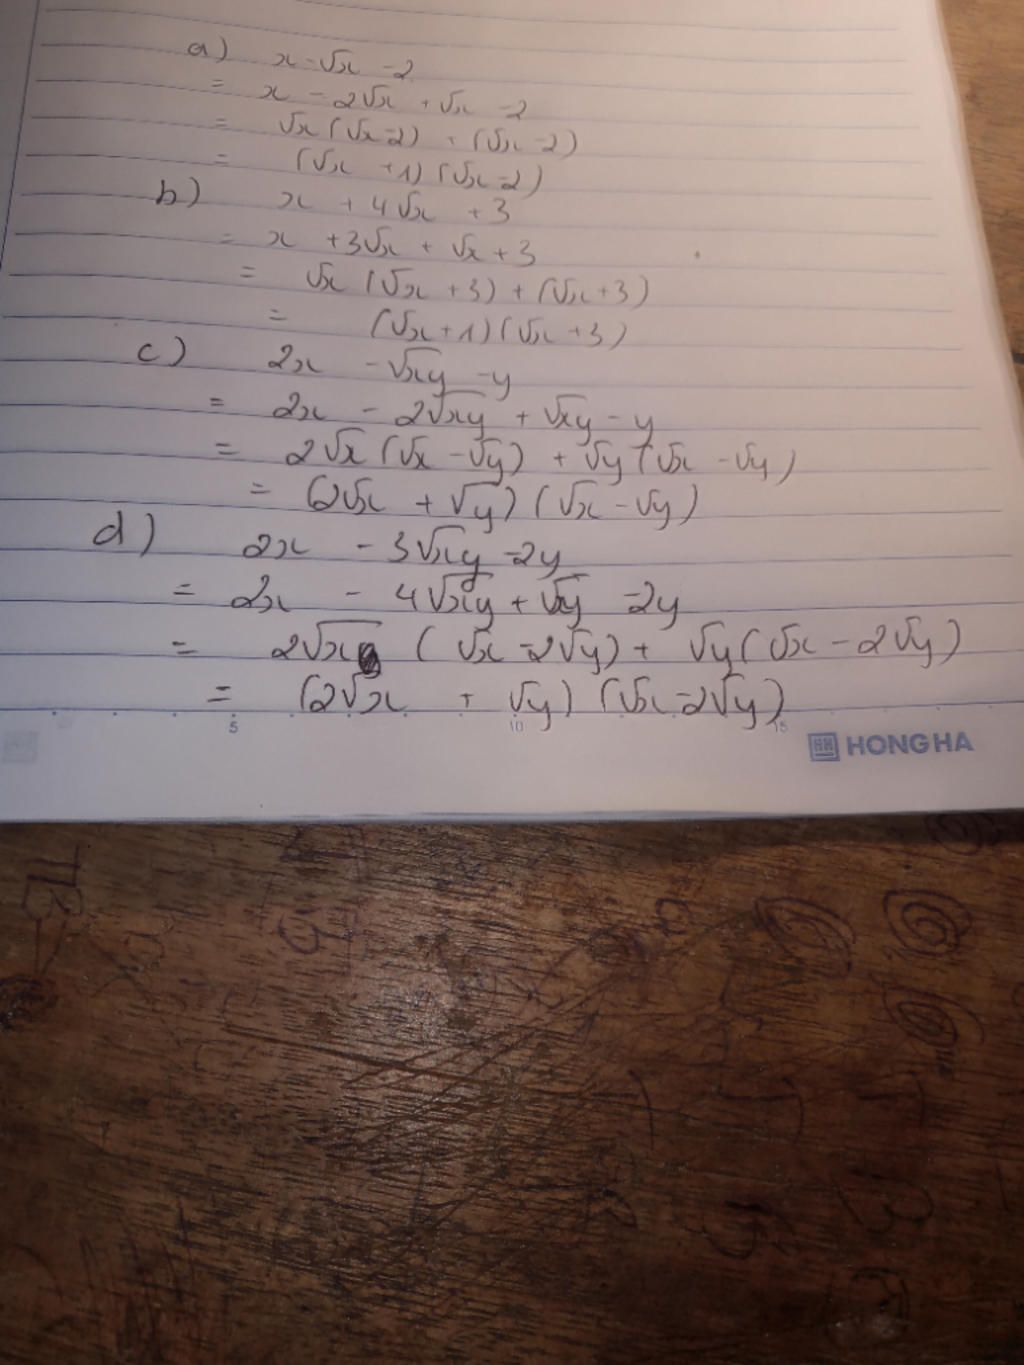 a) x - √x - 2
= x - 2√x + √x - 2
= √x (√x - 2) + (√x - 2)
= (√x + 1) (√x - 2)
b) x + 4√x + 3
= x + 3√x + √x + 3
= √x (√x + 3) + (√x + 3)
= (√x + 1) (√x + 3)
c) 2x - √xy - y
= 2x - 2√xy + √xy - y
= 2√x (√x - √y) + √y (√x - √y)
= (2√x + √y) (√x - √y)
d) 2x - 3√xy - 2y
= 2x - 4√xy + √xy - 2y
= 2√x (√x - 2√y) + √y (√x - 2√y)
= (2√x + √y) (√x - 2√y)
5 10 15
HH HONG HA